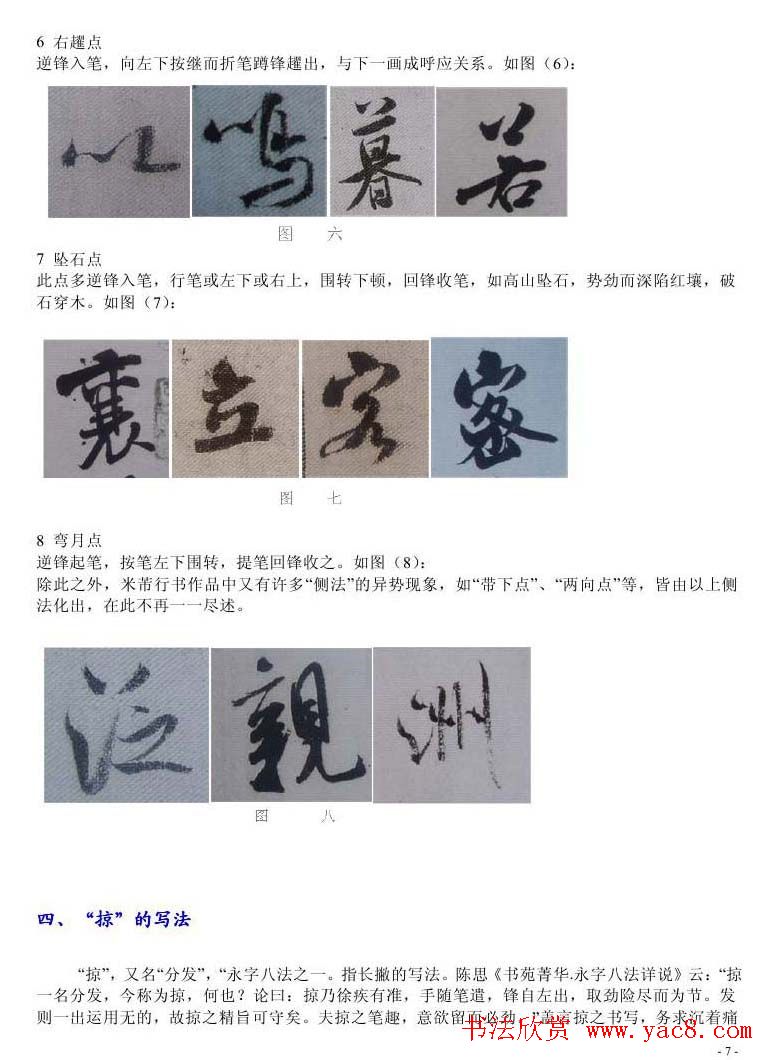 6 右趯点
逆锋入笔，向左下按继而折笔蹲锋趯出，与下一画成呼应关系。如图（6）：
以 鸣 暮 若
图 六
7 坠石点
此点多逆锋入笔，行笔或左下或右上，围转下顿，回锋收笔，如高山坠石，势劲而深陷红壤，破
石穿木。如图（7）：
襄 立 客 密
图 七
8 弯月点
逆锋起笔，按笔左下围转，提笔回锋收之。如图（8）：
除此之外，米芾行书作品中又有许多“侧法”的异势现象，如“带下点”、“两向点”等，皆由以上侧
法化出，在此不再一一尽述。
泛 親 洲
图 八
四、“掠”的写法
“掠”，又名“分发”，“永字八法之一。指长撇的写法。陈思《书苑菁华.永字八法详说》云：“掠
一名分发，今称为掠，何也？论曰：掠乃徐疾有准，手随笔遣，锋自左出，取劲险尽而为节。发
则一出运用无的，故掠之精旨可守矣。夫掠之笔趣，意欲留而必劲，”盖言掠之书写，务求沉着痛
书法欣赏 www.yac8.com
- 7 -